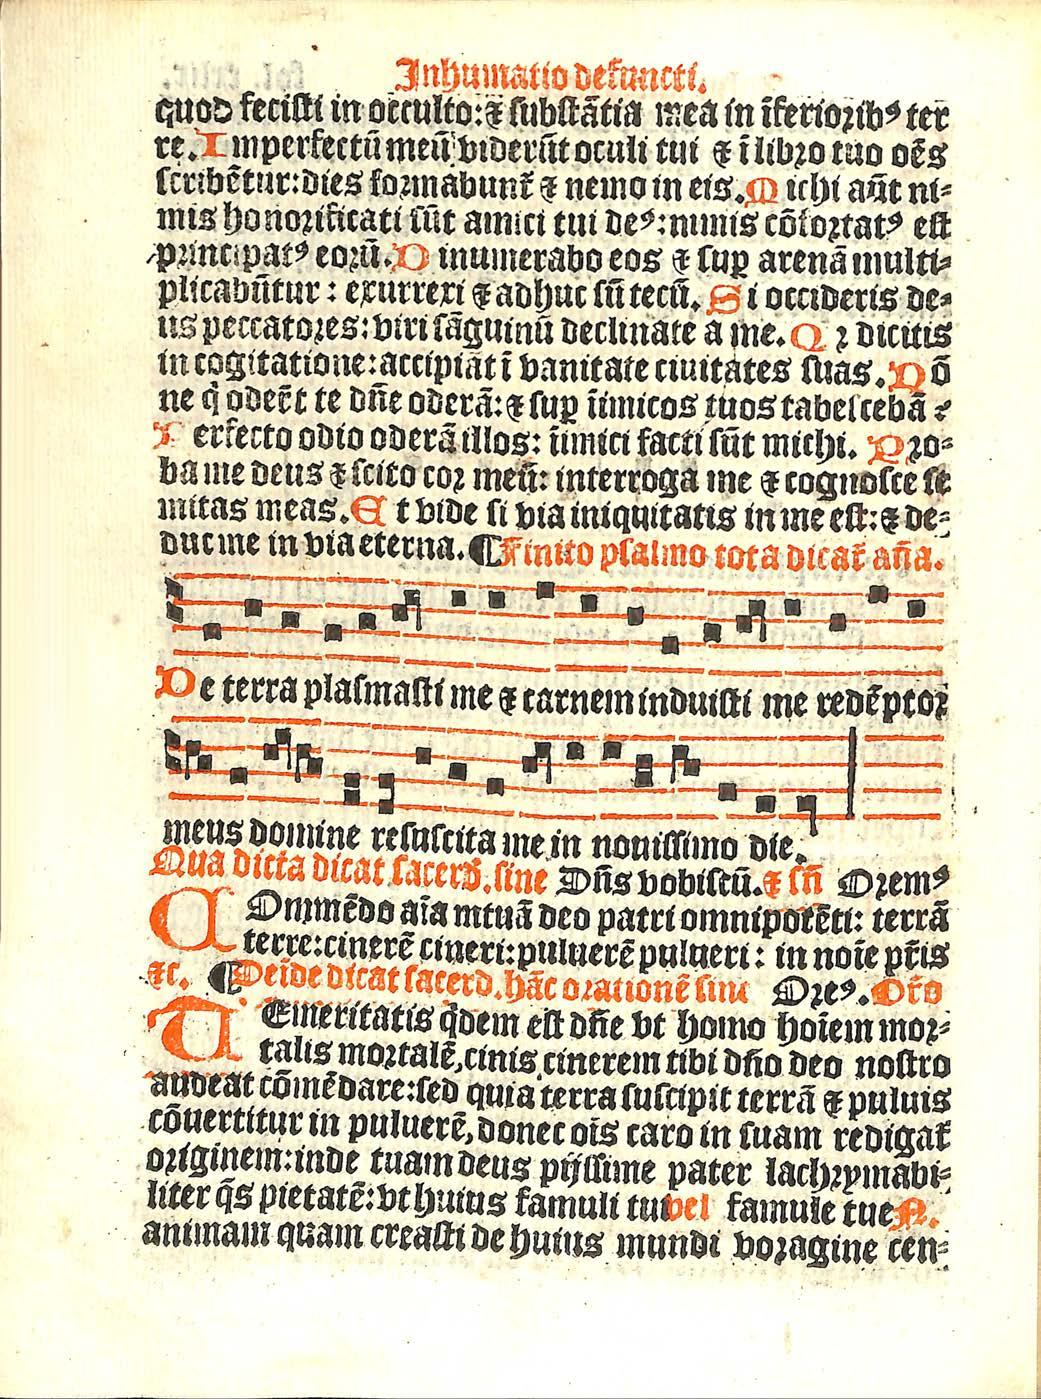 Inhumatio defuncti.
quod fecisti in occulto: ⁊ substātia mea in īferioribꝰ ter
re. Imperfectū meū viderūt oculi tui ⁊ ī libro tuo oēs
scribētur: dies formabunt̄ ⁊ nemo in eis. Michi aūt ni⸗
mis honorificati sūt amici tui deꝰ: nimis cōfortatꝰ est
principatꝰ eorū. Dinumerabo eos ⁊ sup arenā multi⸗
plicabūtur: exurrexi ⁊ adhuc sū tecū. Si occideris de⸗
us peccatores: viri sāguinū declinate a me. Qr dicitis
in cogitatione: accipiāt ī vanitate ciuitates suas. Nō
ne q̄ oder̄t te dn̄e oderā: ⁊ sup īimicos tuos tabescebā?
Perfecto odio oderā illos: īimici facti sūt michi. Pro⸗
ba me deus ⁊ scito cor meū: interroga me ⁊ cognosce se
mitas meas. Et vide si via iniquitatis in me est: ⁊ de⸗
duc me in via eterna. ¶ Finito psalmo tota dicat̄ an̄a.
De terra plasmasti me ⁊ carnem induisti me redēptor
meus domine resuscita me in nouissimo die.
Qua dicta dicat sacerd̄. sine Dn̄s vobiscū. ⁊ sn̄ Oremꝰ
COmmēdo aīa mtuā deo patri omnipotēti: terrā
terre: cinerē cineri: puluerē pulueri: in noīe pr̄is
⁊c. ¶ Deīde dicat sacerd. hāc orationē sine Oreꝰ. Or̄o
TEmeritatis q̄dem est dn̄e vt homo hoīem mor⸗
talis mortalē, cinis cinerem tibi dn̄o deo nostro
audeat cōmēdare: sed quia terra suscipit terrā ⁊ puluis
cōuertitur in puluerē, donec oīs caro in suam redigat̄
originem: inde tuam deus pijssime pater lachrymabi⸗
liter q̄s pietatē: vt huius famuli tui vel famule tue N.
animam quam creasti de huius mundi voragine cen⸗